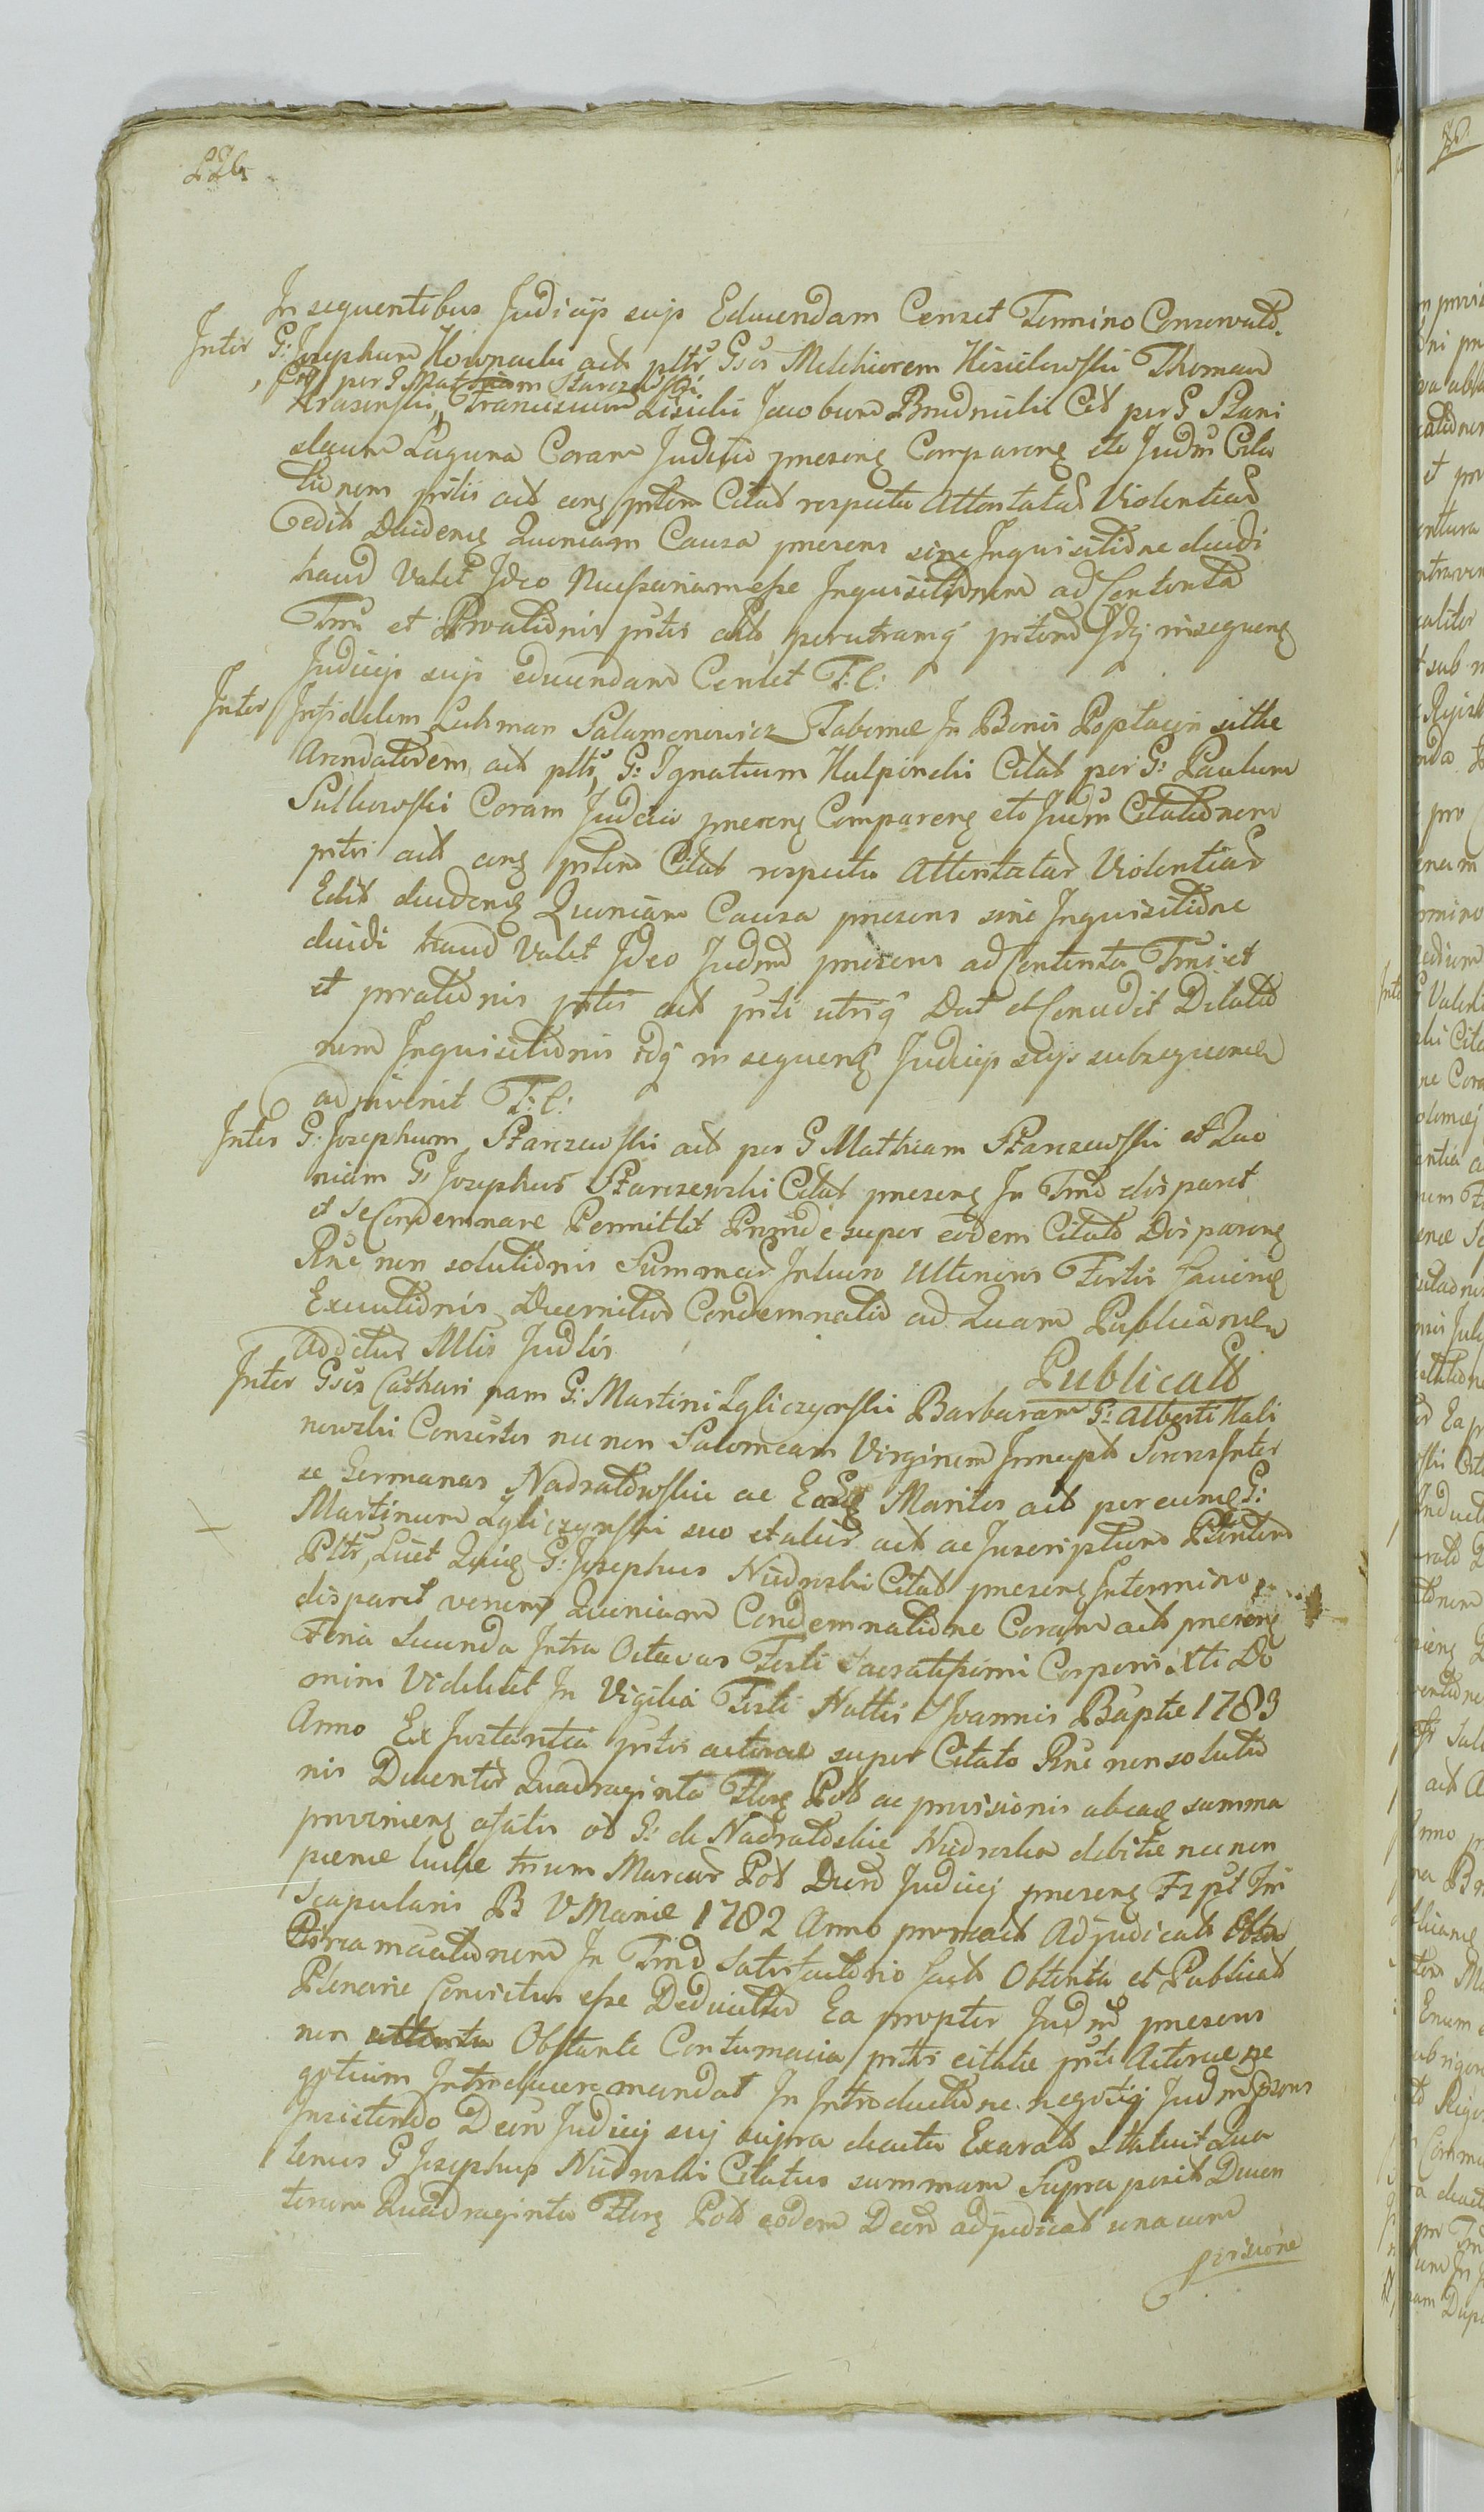 226
In sequentibus Judicijs sujs Educendam Censet Termino Conservato.
Inter G: Josephum Kownacki act pltr Gsos Melchiorem Kisielewski Thomam
Cit per G Mathiam Starczewski
Krasinski, Franciscum Lisicki Jacobum Brudnicki Cit per G Stani
slaum Laguna Coram Judicio presens Comparens etc Judm Cita
tionem prtis act cons prtem Citat respectu Attentatar Violentiar
Edit Decidens Quoniam Causa presens sine Inquisitione decidi
haud Valet Ideo Necessariam esse Inquisitionem ad Contenta
Tmi et Provationis prtis act per utramq prtem Idq in sequens
Judicijs sujs educendam Censet T: C:
Inter Infidelem Luhman Salamonowicz Tabernae In Bonis Poplacyn sittae
Arendatorem act pltr, G: Ignatium Kulpinski Citat per G: Paulum
Sutkowski Coram Judicio presens Comparens etc Judm Citationem
prtis act cons prtem Citat respectu Attentatar Violentiar
Edit decidens Quoniam Causa presens sine Inquisitione
decidi haud Valet Ideo Judm presens ad Contenta Tmi et
et provationis prtis act prti utriq Dat et Concedit Dilatio
nem Inquisitionis idq in sequens Judicijs sujs subsequenda
adjnvenit T: C:
Inter G: Josephum Starczewski act per G Mathiam Starczewski et Quo
niam G: Josephus Starczewski Citat presens In Tmo disparet
et se Condemnare Permittit Proinde super eodem Citato Disparens
Rne non solutionis Summae In luero Ulterioris Fertis
Executionis Decernitur Condemnatio ad Quam Publicandam
Additur Mlis Judlis
Publicatt
Inter Gsos Catharinam G: Martini Zgliczynski Barbaram G: Alberti Kali
nowski Consortes necnon Salomeam Virginem Innupt Sorores Inter
se Germanas Nadratowskie ac Eorg Maritos act per eume G:
Martinum Zgliczynski suo et alior act ac Inscriptum
Pltr, Licet G: Josephus Niedroski Citat presens In termino
disparet verum Quoniam Condemnatione Coram act presens
Feria Secunda Intra Octavas Festi Sacratissimi Corporis Xti Do
mini Videlicet In Vigilia Festi Nattis S Joannis Baptae 1783
Anno Ex Instantia prtis actoreae super Citato Rne non solutio
nis Ducentor Quadraginta Flors Pol ac provisionis abeadg summa
proveniens aptis ob G: de Nadratoskie Niedroska debitae necnon
paenae luitae trium Marcar Pol Decro Judicij presens
Scapularis B V Mariae 1782 Anno Adjudicat
In Tmo Satisfactorio fact Obtenta et Publicat
Plenarie Convictus esse Deducitur Ea propter Judm presens
non Obstante Contumacia prtis citatae prti Actoreae ne
gotium Introducere mandat In Introductione negotij Judm prsens
Insistendo Decro Judicij suj supra citato Exarato Statuit Qua
tenus G Josephus Niedroski Citatus summam Supra posit Ducen
torum Quadraginta Flors Pol eodem Decro adjudicat unacum
provisione